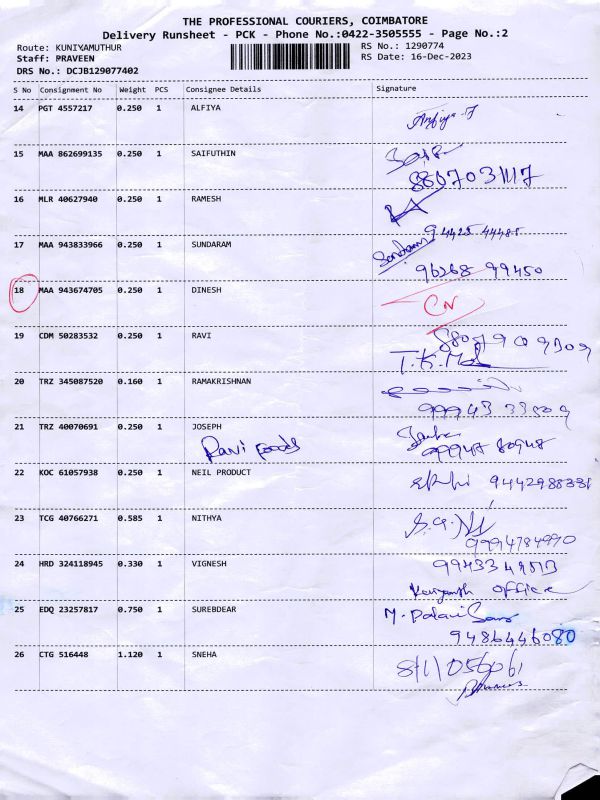 THE PROFESSIONAL COURIERS, COIMBATORE
Delivery Runsheet - PCK - Phone No.:0422-3505555 - Page No.:2
Route: KUNIYAMUTHUR
RS No.: 1290774
Staff: PRAVEEN
RS Date: 16-Dec-2023
DRS No.: DCJB129077402
S No Consignment No Weight PCS Consignee Details Signature
14 PGT 4557217 0.250 1 ALFIYA
15 MAA 862699135 0.250 1 SAIFUTHIN
16 MLR 40627940 0.250 1 RAMESH
94425 44485
17 MAA 943833966 0.250 1 SUNDARAM Sundaram
96268 99450
18 MAA 943674705 0.250 1 DINESH CN
19 CDM 50283532 0.250 1 RAVI
20 TRZ 345087520 0.160 1 RAMAKRISHNAN
21 TRZ 40070691 0.250 1 JOSEPH
Ravi foods 99948 80948
22 KOC 61057938 0.250 1 NEIL PRODUCT
23 TCG 40766271 0.585 1 NITHYA
9994784990
24 HRD 324118945 0.330 1 VIGNESH
office
25 EDQ 23257817 0.750 1 SUREBDEAR M. Palani
9486446080
26 CTG 516448 1.120 1 SNEHA